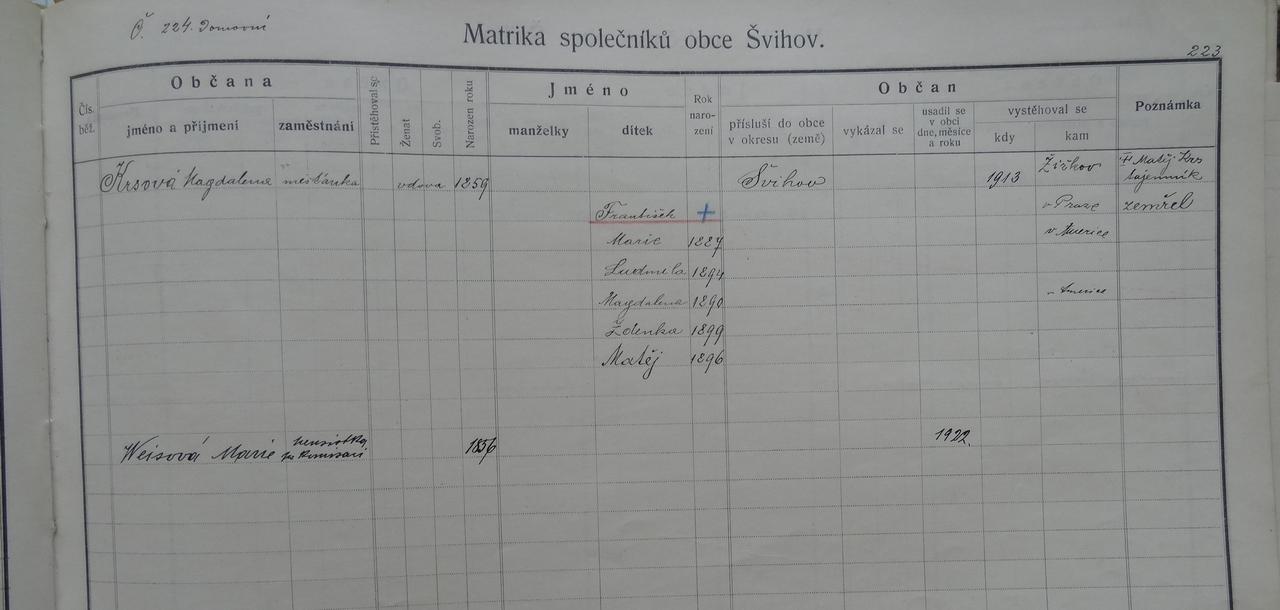 Č. 224. Domovní
Matrika společníků obce Švihov.
223
Čís. běž.
Občana
jméno a příjmení
zaměstnání
Přistěhoval se
Ženat
Svob.
Narozen roku
Jméno
manželky
dítek
Rok naro- zení
Občan
přísluší do obce v okresu (země)
vykázal se
usadil se v obci dne, měsíce a roku
vystěhoval se
kdy
kam
Poznámka
Krsová Magdalena měšťanka vdova 1859 Švihov 1913 Žižkov Matěj Krs
tajemník
František + v Praze zemřel
Marie 1887 v Americe
Ludmila 1894
Magdalena 1890 v Americe
Zdenka 1899
Matěj 1896
Weisová Marie pensistka po komisaři 1856 1922.